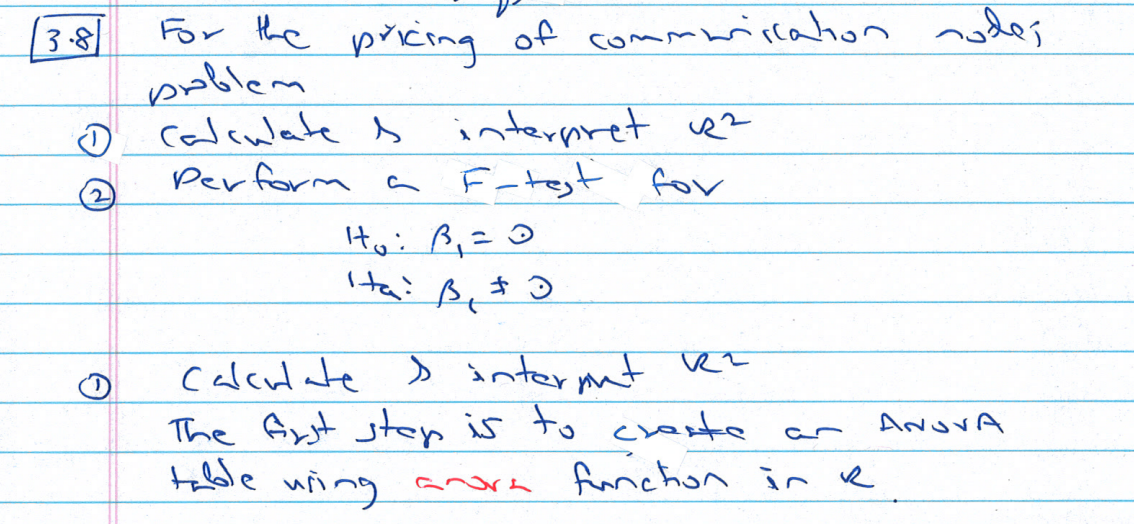 3.8 For the pricing of communication nodes
problem
① Calculate & interpret R²
② Perform a F-test for
H₀: β₁ = 0
Ha: β₁ ≠ 0
① Calculate & interpret R²
The first step is to create an ANOVA
table using anova function in R.